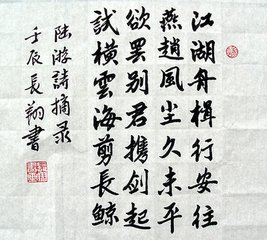 江湖舟楫行安往
燕趙風尘久未平
欲罢别君携剑起
試横雲海剪長鲸
陸游詩摘录
壬辰長翔書